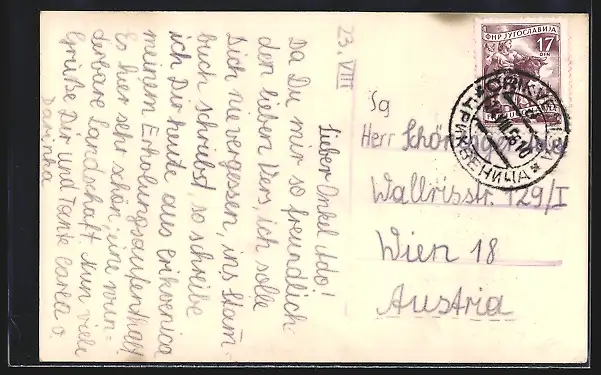 23. VIII
Lieber Onkel Ado!
Da Du mir so freundlich
den lieben Vers ich solle
Dich nie vergessen, ins Stam-
buch schriebst, so schreibe
ich Dir heute aus Crikvenica
meinem Erholungsaufenthalt
Es hier sehr schön, eine wun=
derbare Landschaft. Nun viele
Grüße Dir und Tante Carla v.
Darinka
ФНР ЈУГОСЛАВИЈА
17
DIN
ЦРИКВЕНИЦА
Sg
Herr Schön
Wallrisstr. 129/I
Wien 18
Austria